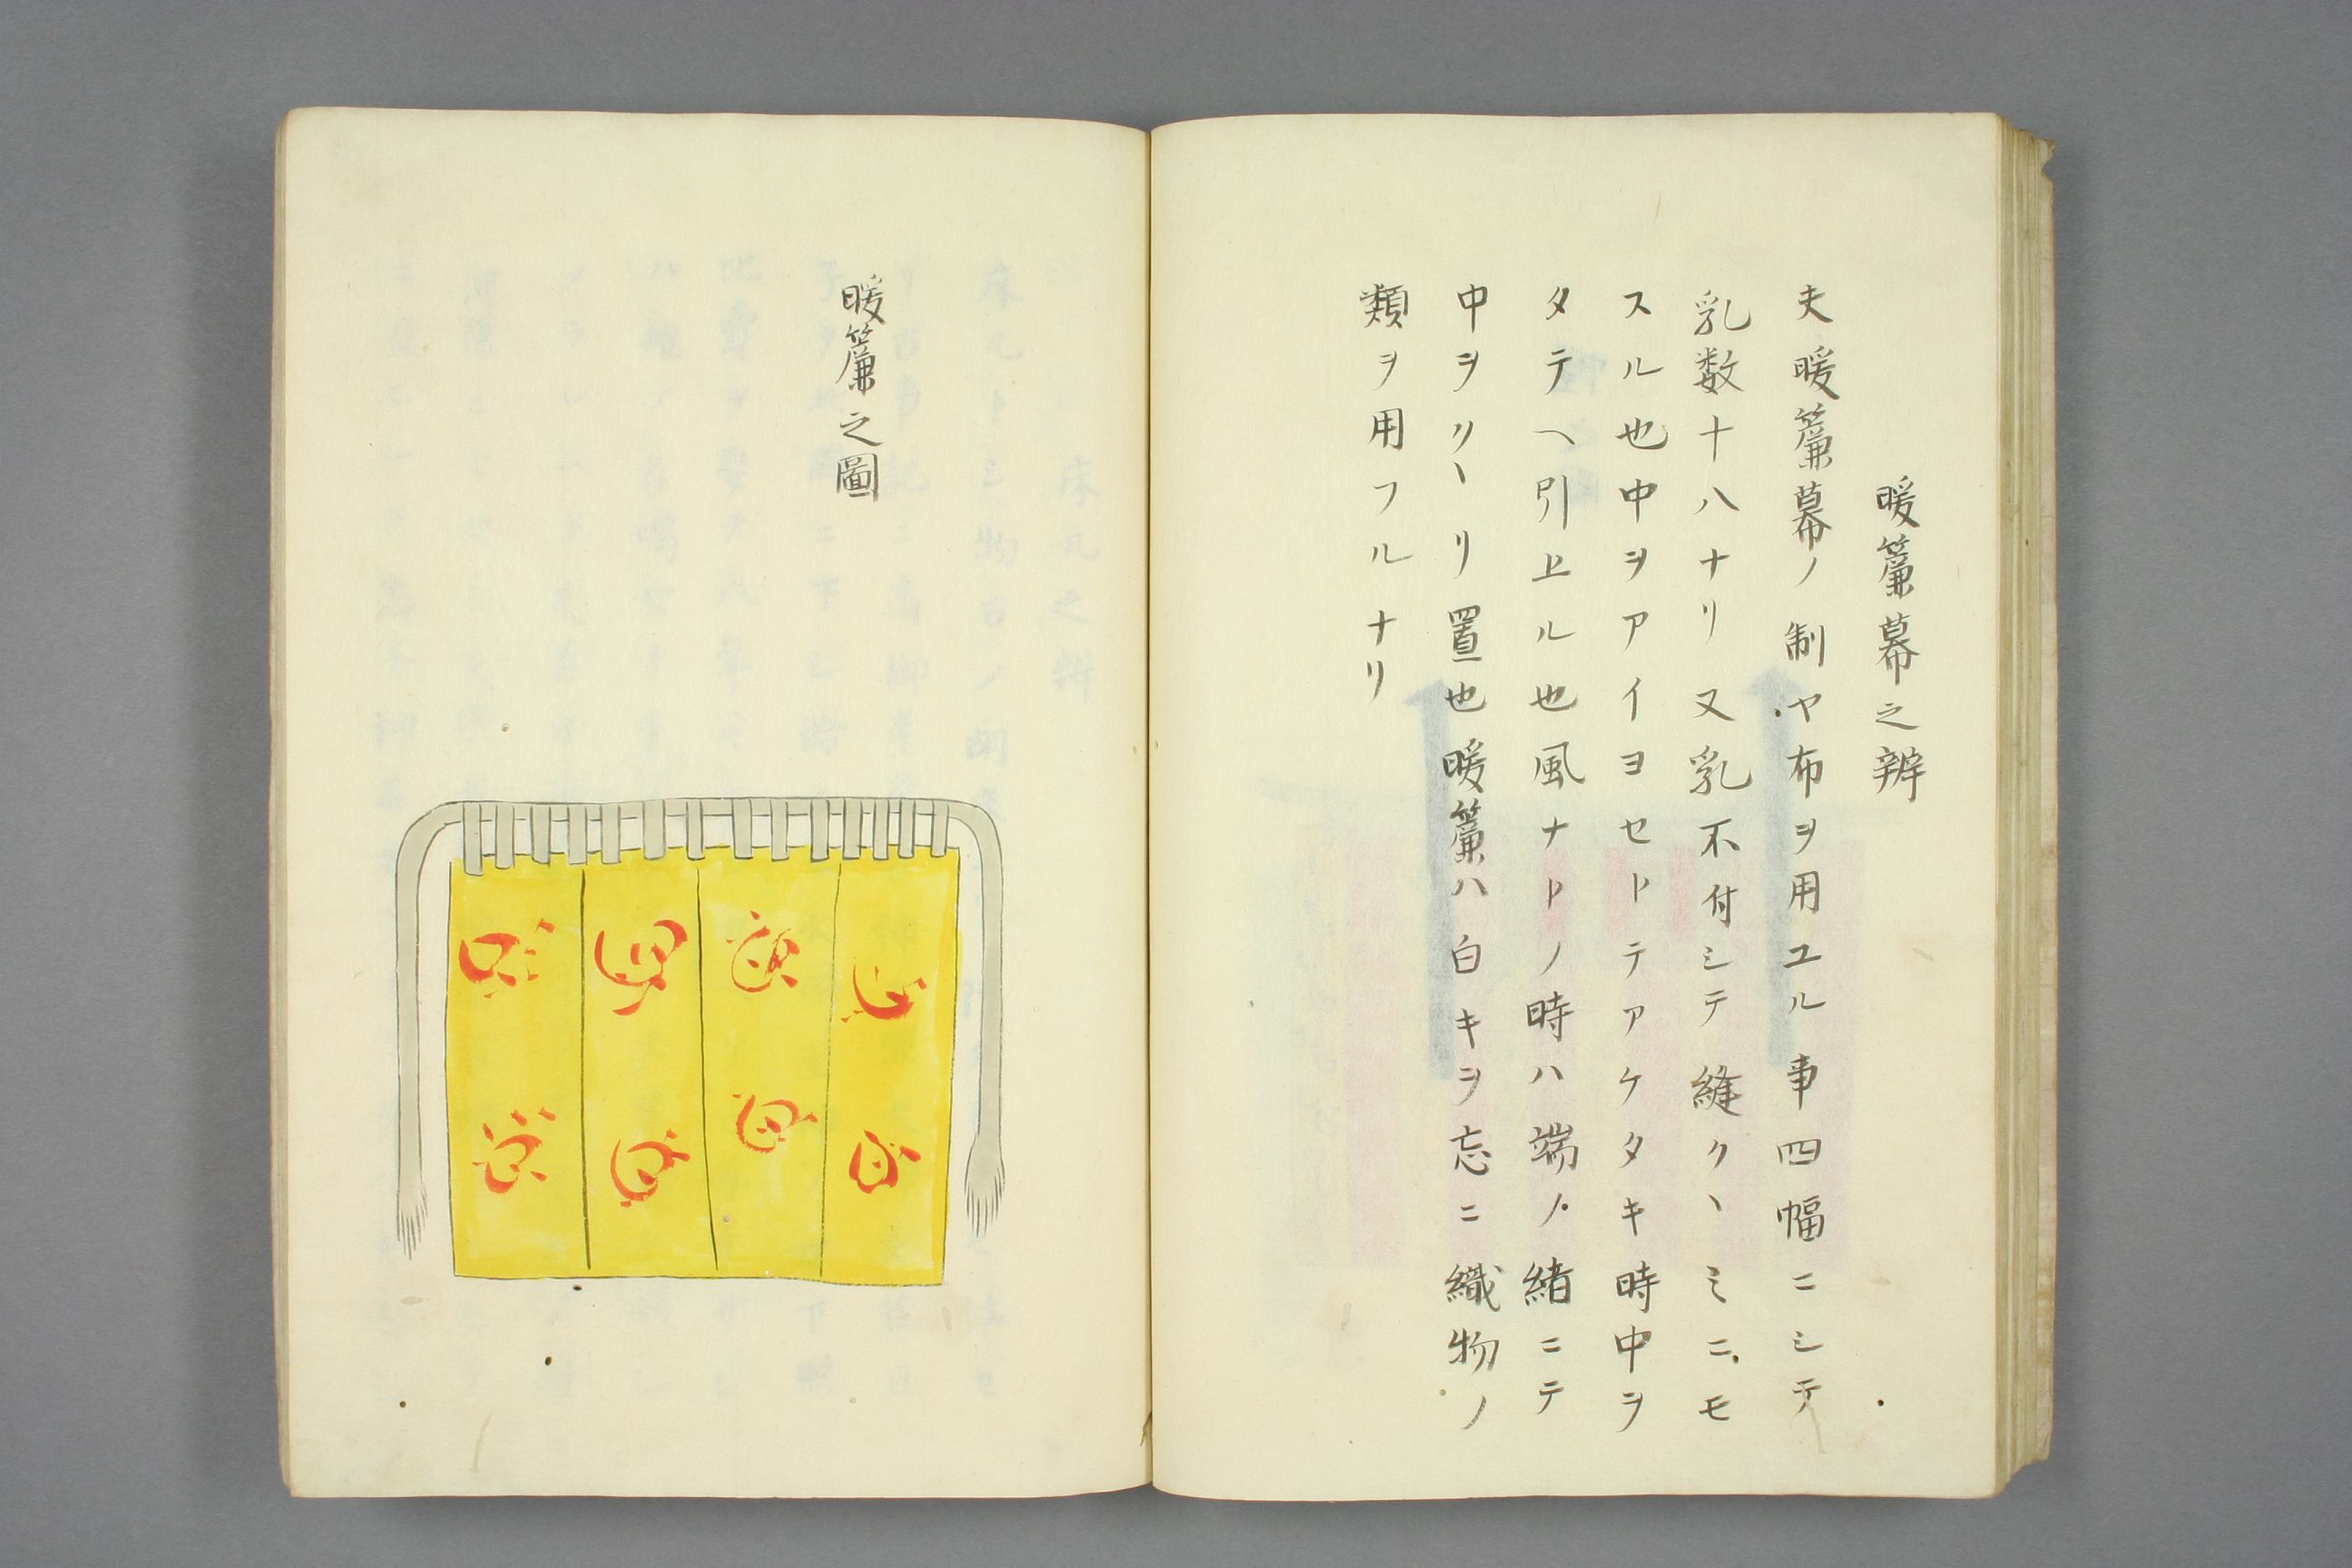 暖簾幕之辨
夫暖簾幕ノ制ヤ布ヲ用ユル事四幅ニシテ
乳数十八ナリ又乳不付シテ縫クヽミニモ
スル也中ヲアイヨセトテアケタキ時中ヲ
タテヘ引上ル也風ナトノ時ハ端ノ緒ニテ
中ヲクヽリ置也暖簾ハ白キヲ忘ニ織物ノ
類ヲ用フルナリ
暖簾之圖